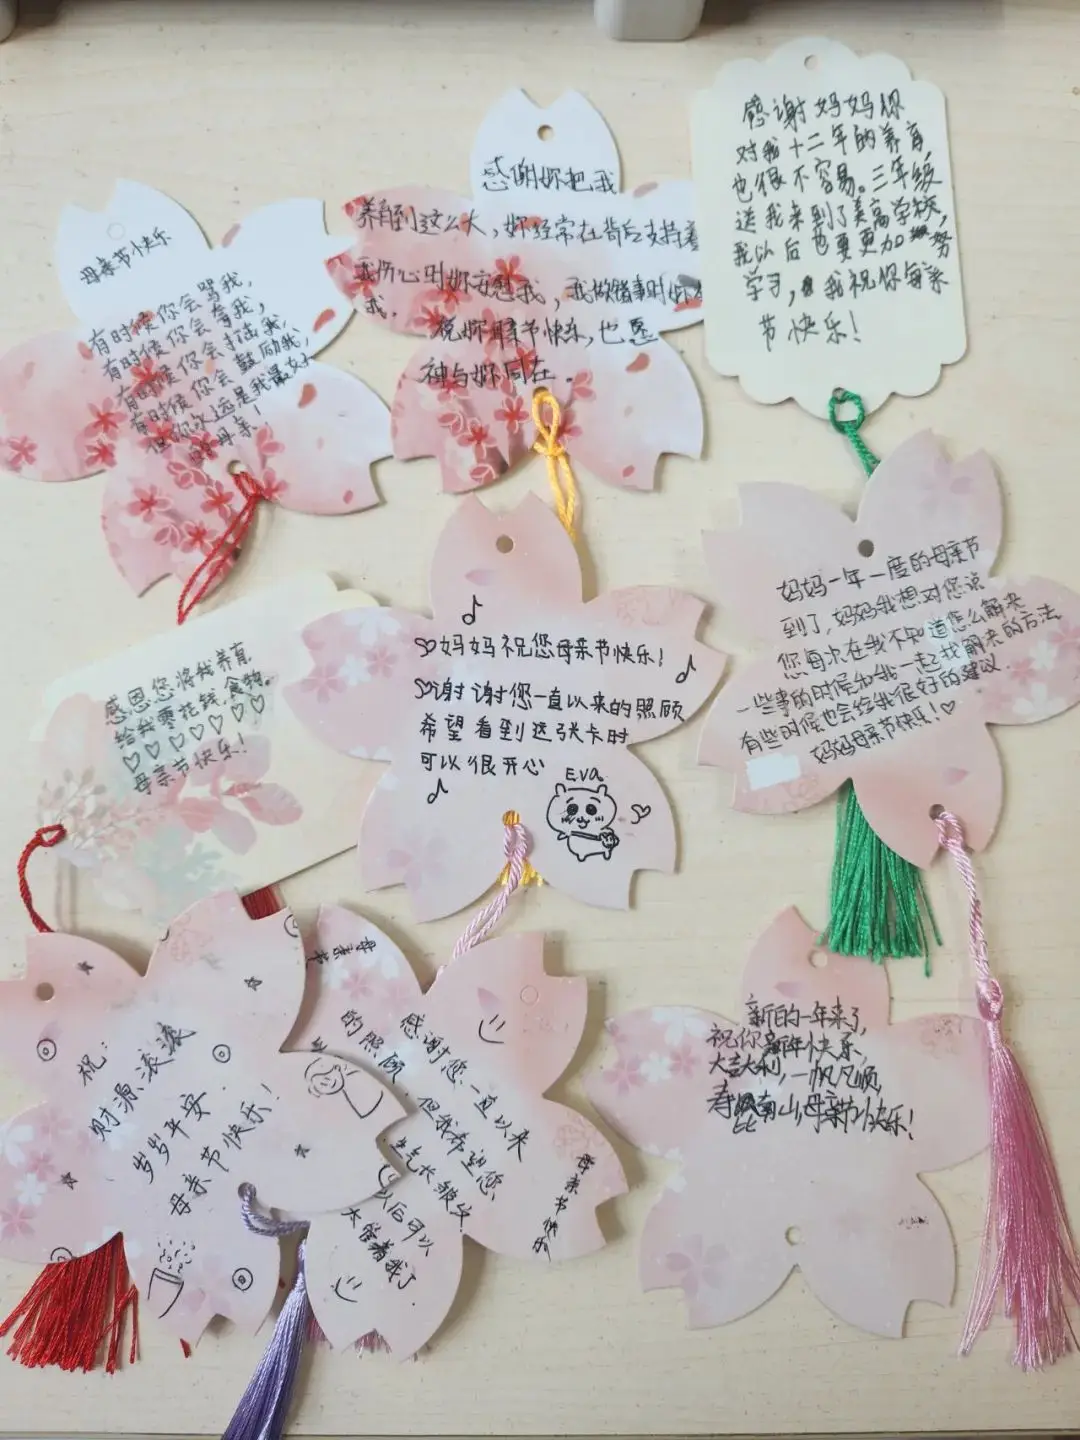 母亲节快乐
有时候你会骂我,
有时候你会夸我,
有时候你会打击我,
有时候你会鼓励我,
但你永远是我最好
的母亲!
感谢妳把我
养育到这么大,妳经常在背后支持着
我伤心时妳安慰我,我做错事时
我.
祝妳母亲节快乐,也愿
神与妳同在.
感谢妈妈你
对我十二年的养育,
也很不容易。三年级
送我来到了美高学校,
我以后也要更加努
学习,我祝你母亲
节快乐!
感恩您将我养育,
给我零花钱,食物。
♡♡♡♡♡♡
母亲节快乐!
♡妈妈祝您母亲节快乐!
♡谢谢您一直以来的照顾
希望看到这张卡时
可以很开心
Eva
妈妈一年一度的母亲节
到了,妈妈我想对您说
您每次在我不知道怎么解决
一些事的时候和我一起找解决的方法
有些时候也会给我很好的建议.
妈妈母亲节快乐!♡
祝:
财源滚滚
岁岁平安.
母亲节快乐!
感谢您一直以来
的照顾.但我希望您
生气长皱纹.
以后可以
不管着我了.
母亲节快乐
新的一年来了,
祝你新年快乐
大吉大利,一帆风顺
寿比南山,母亲节快乐!